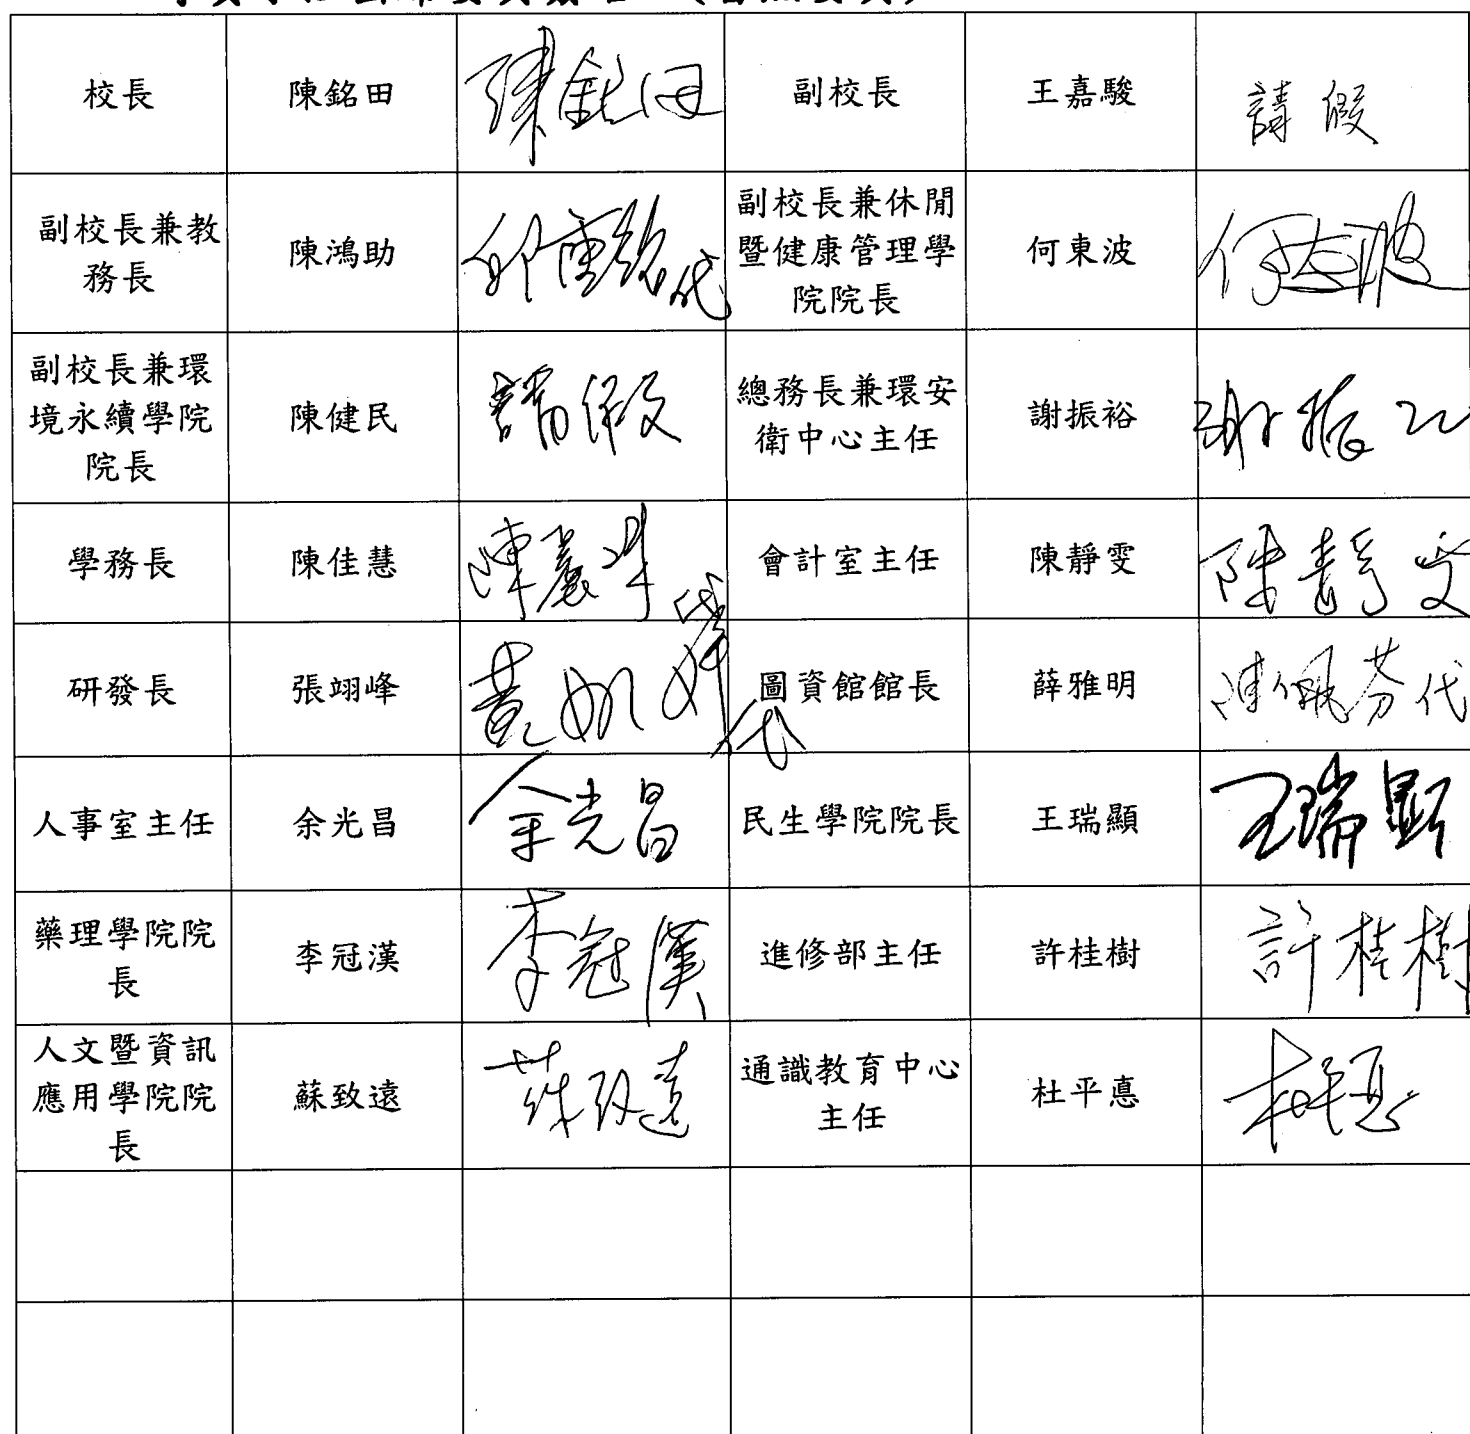 校長 陳銘田 陳銘田 副校長 王嘉駿 請假
副校長兼教
務長
陳鴻助
代
副校長兼休閒
暨健康管理學
院院長
何東波 何東波
副校長兼環
境永續學院
院長
陳健民 請假
總務長兼環安
衛中心主任
謝振裕 謝振裕
學務長 陳佳慧 陳麗 代 會計室主任 陳靜雯 陳靜雯
研發長 張翊峰 黃 代 圖資館館長 薛雅明 陳佩芬代
人事室主任 余光昌 余光昌 民生學院院長 王瑞顯 王瑞顯
藥理學院院
長
李冠漢 李冠漢 進修部主任 許桂樹 許桂樹
人文暨資訊
應用學院院
長
蘇致遠 蘇致遠
通識教育中心
主任
杜平悳 杜平悳